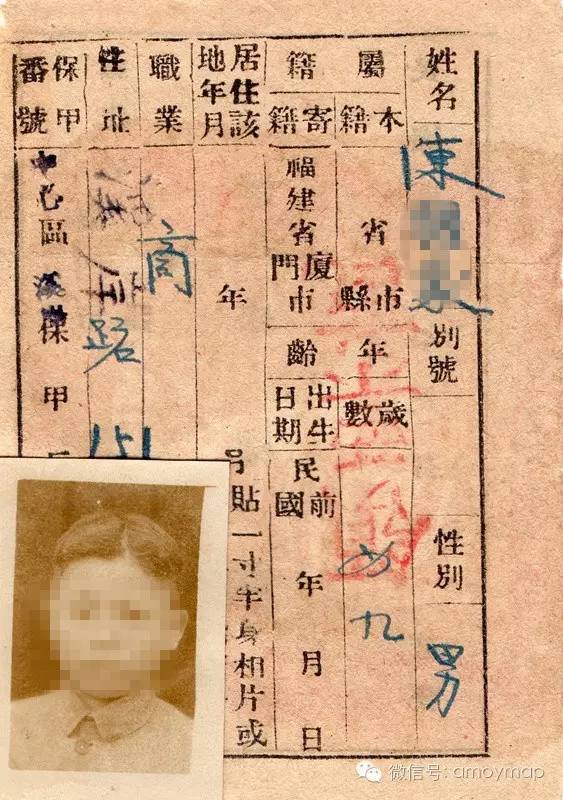 姓名 陳 別號 性別 男
屬 本籍 省 市縣 年 歲數 廿九
籍 寄籍 福建省廈門市 齡 出生日期 民國前 年 月 日
居住該地年月 年
貼一寸半身相片或
職業 商
住址 路 151
保甲番號 中心區 保 甲
微信号: amoymap